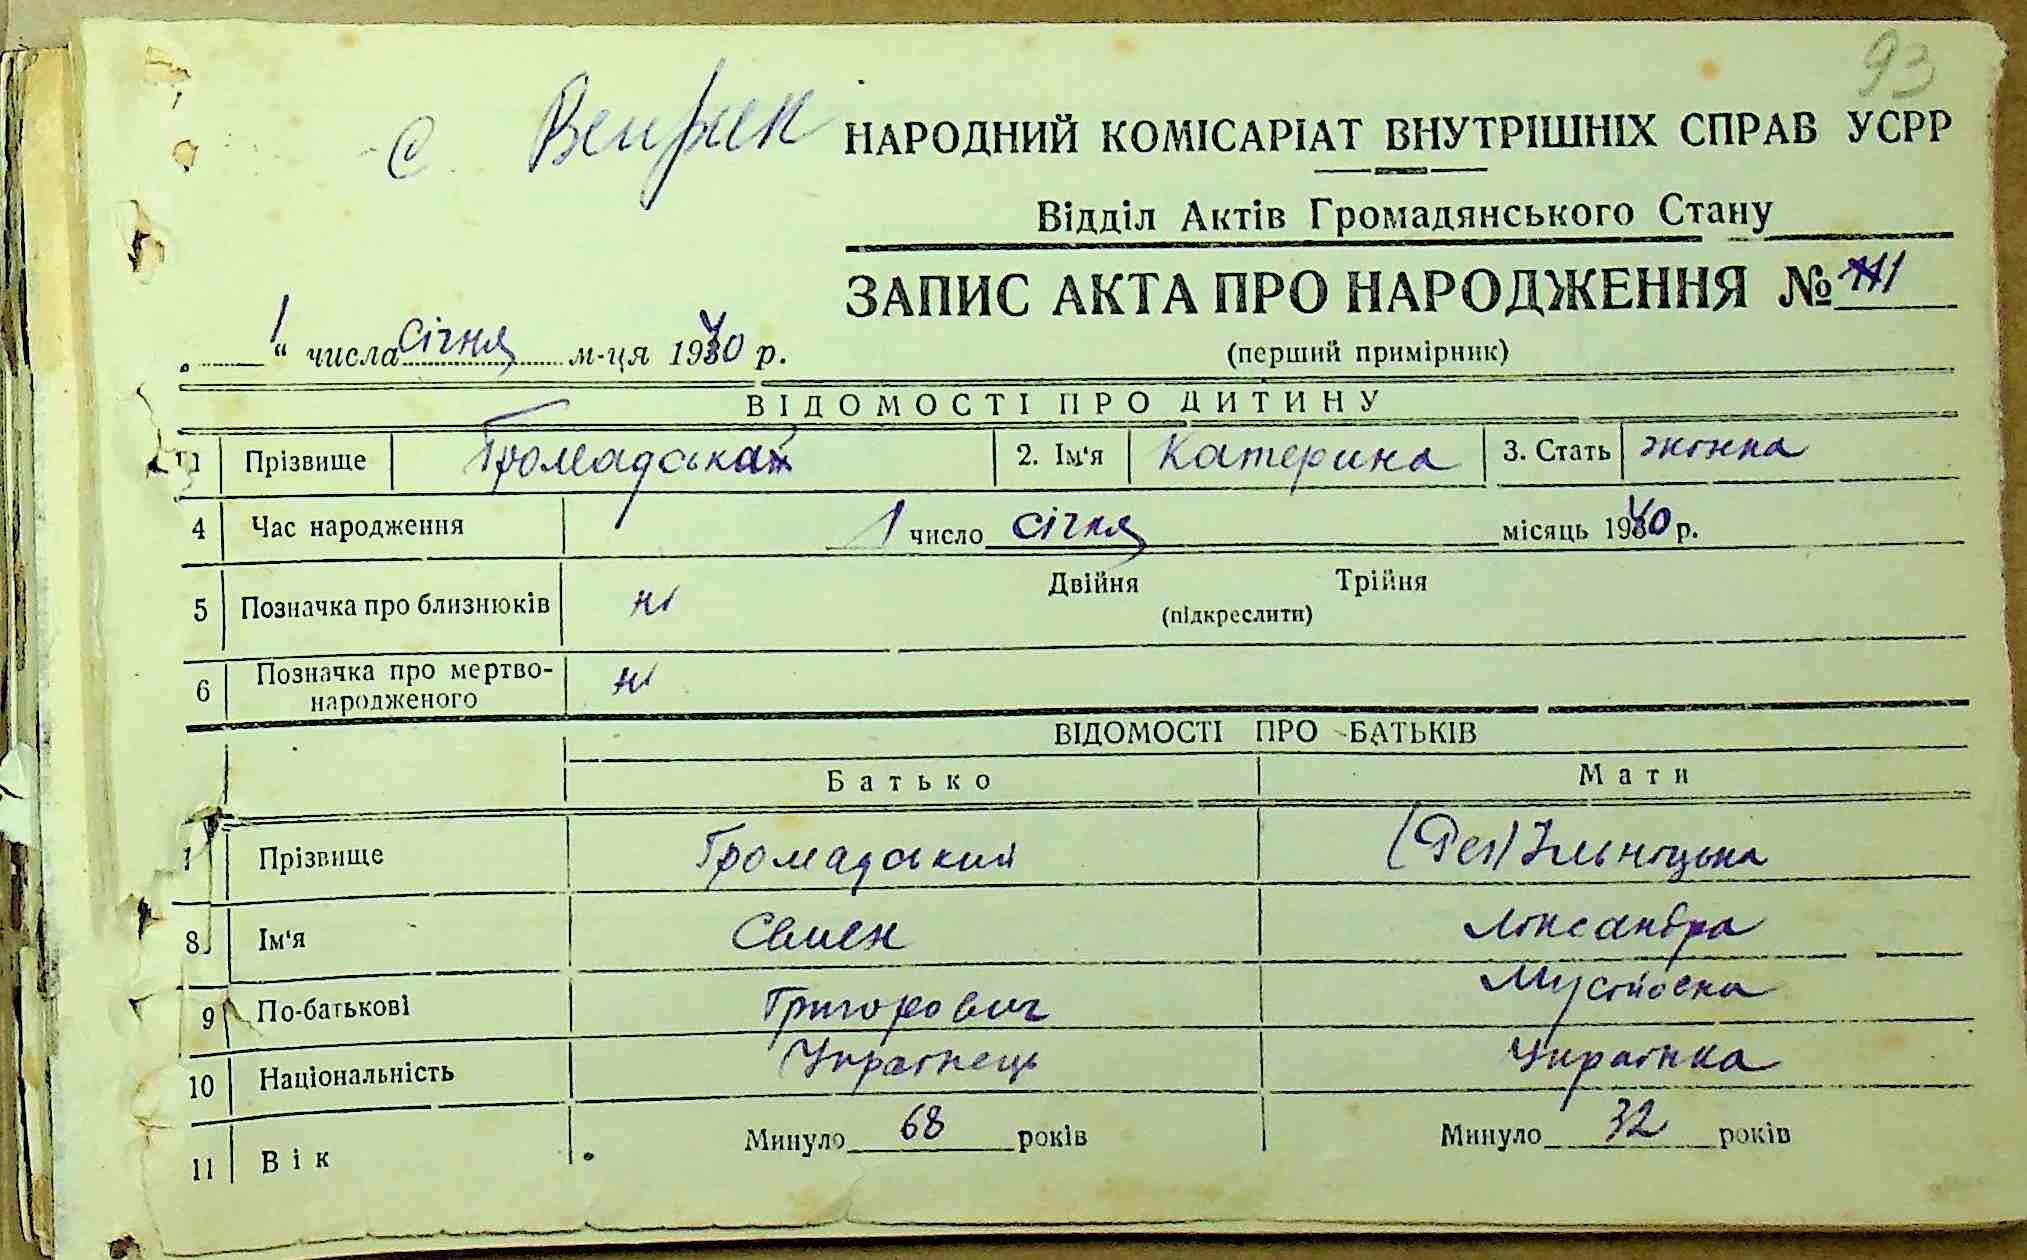 93
с. Веприк
НАРОДНИЙ КОМІСАРІАТ ВНУТРІШНІХ СПРАВ УСРР
Відділ Актів Громадянського Стану
ЗАПИС АКТА ПРО НАРОДЖЕННЯ №
„ 1 “ числа січня м-ця 1940 р.
(перший примірник)
ВІДОМОСТІ ПРО ДИТИНУ
1 Прізвище Громадська 2. Ім'я Катерина 3. Стать жінка
4 Час народження 1 число січня місяць 1940 р.
5 Позначка про близнюків ні Двійня Трійня
(підкреслити)
6 Позначка про мертво-
народженого ні
ВІДОМОСТІ ПРО БАТЬКІВ
Батько Мати
7 Прізвище Громадський Ільніцька
8 Ім'я Семен Лександра
9 По-батькові Григорович Мусіївна
10 Національність Українець Українка
11 Вік Минуло 68 років Минуло 32 років